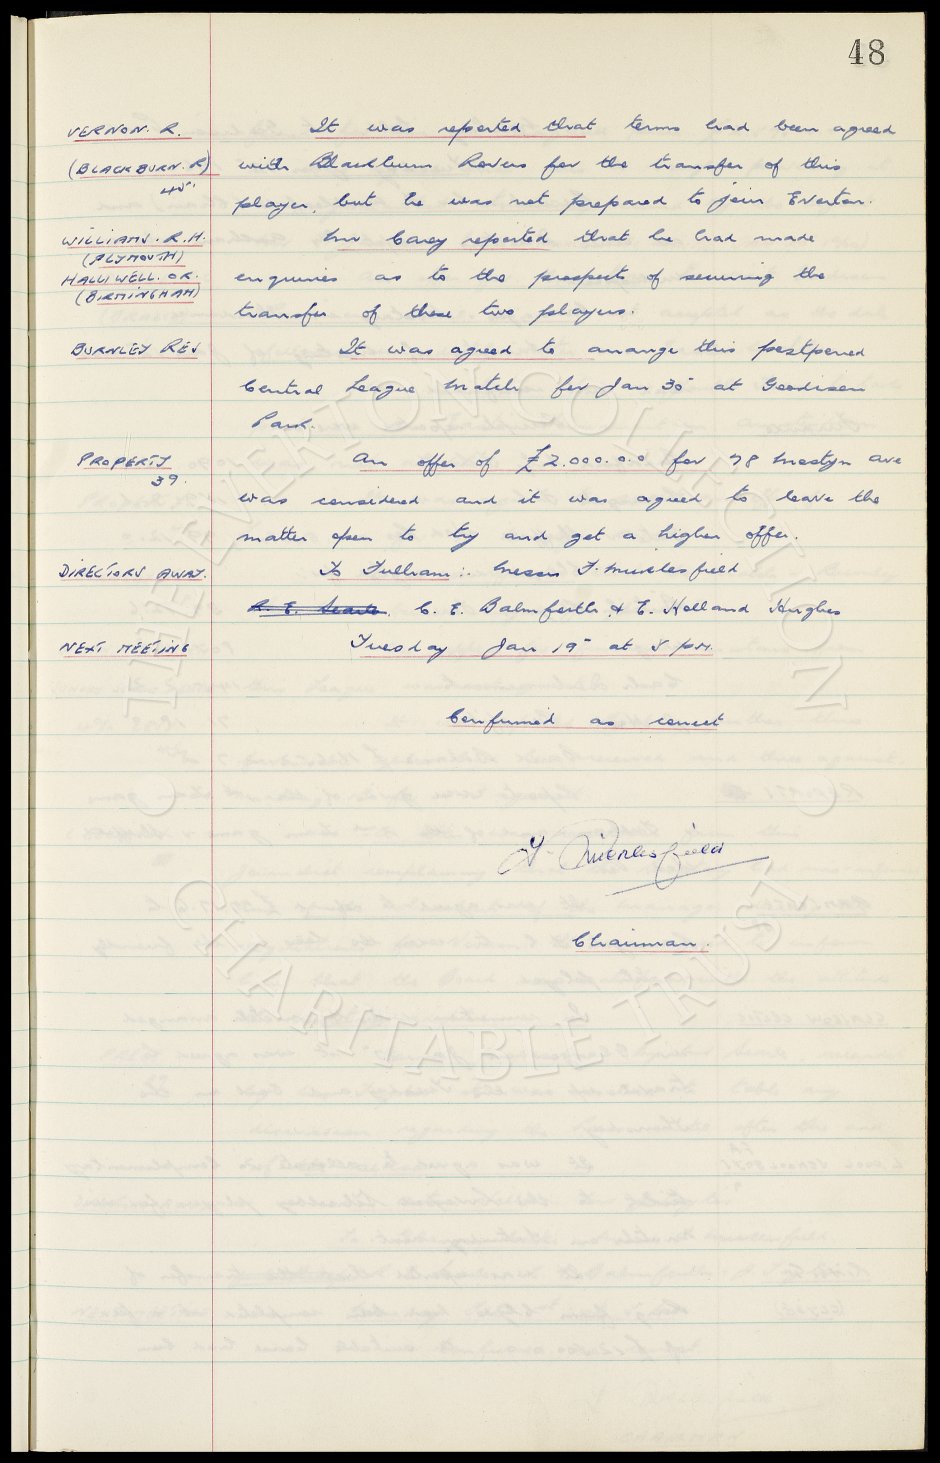 48
VERNON. R. It was reported that terms had been agreed
(BLACKBURN. R) with Blackburn Rovers for the transfer of this
45. player, but he was not prepared to join Everton.
WILLIAMS. R.H. Mr Carey reported that he had made
(PLYMOUTH)
HALLIWELL. OR. enquiries as to the prospects of securing the
(BIRMINGHAM)
transfer of these two players.
BURNLEY RES It was agreed to arrange this postponed
Central League match for Jan 30 at Goodison
Park.
PROPERTY An offer of £2.000.0.0 for 78 Mostyn ave
39. was considered and it was agreed to leave the
matter open to try and get a higher offer.
DIRECTORS AWAY. To Fulham:. Messrs F. Micklesfield
R. E. Searle. C. E. Balmforth & E. Holland Hughes
NEXT MEETING Tuesday Jan 19 at 5 pm.
Confirmed as correct
F. Micklesfield
Chairman.
THE EVERTON COLLECTION
CHARITABLE TRUST